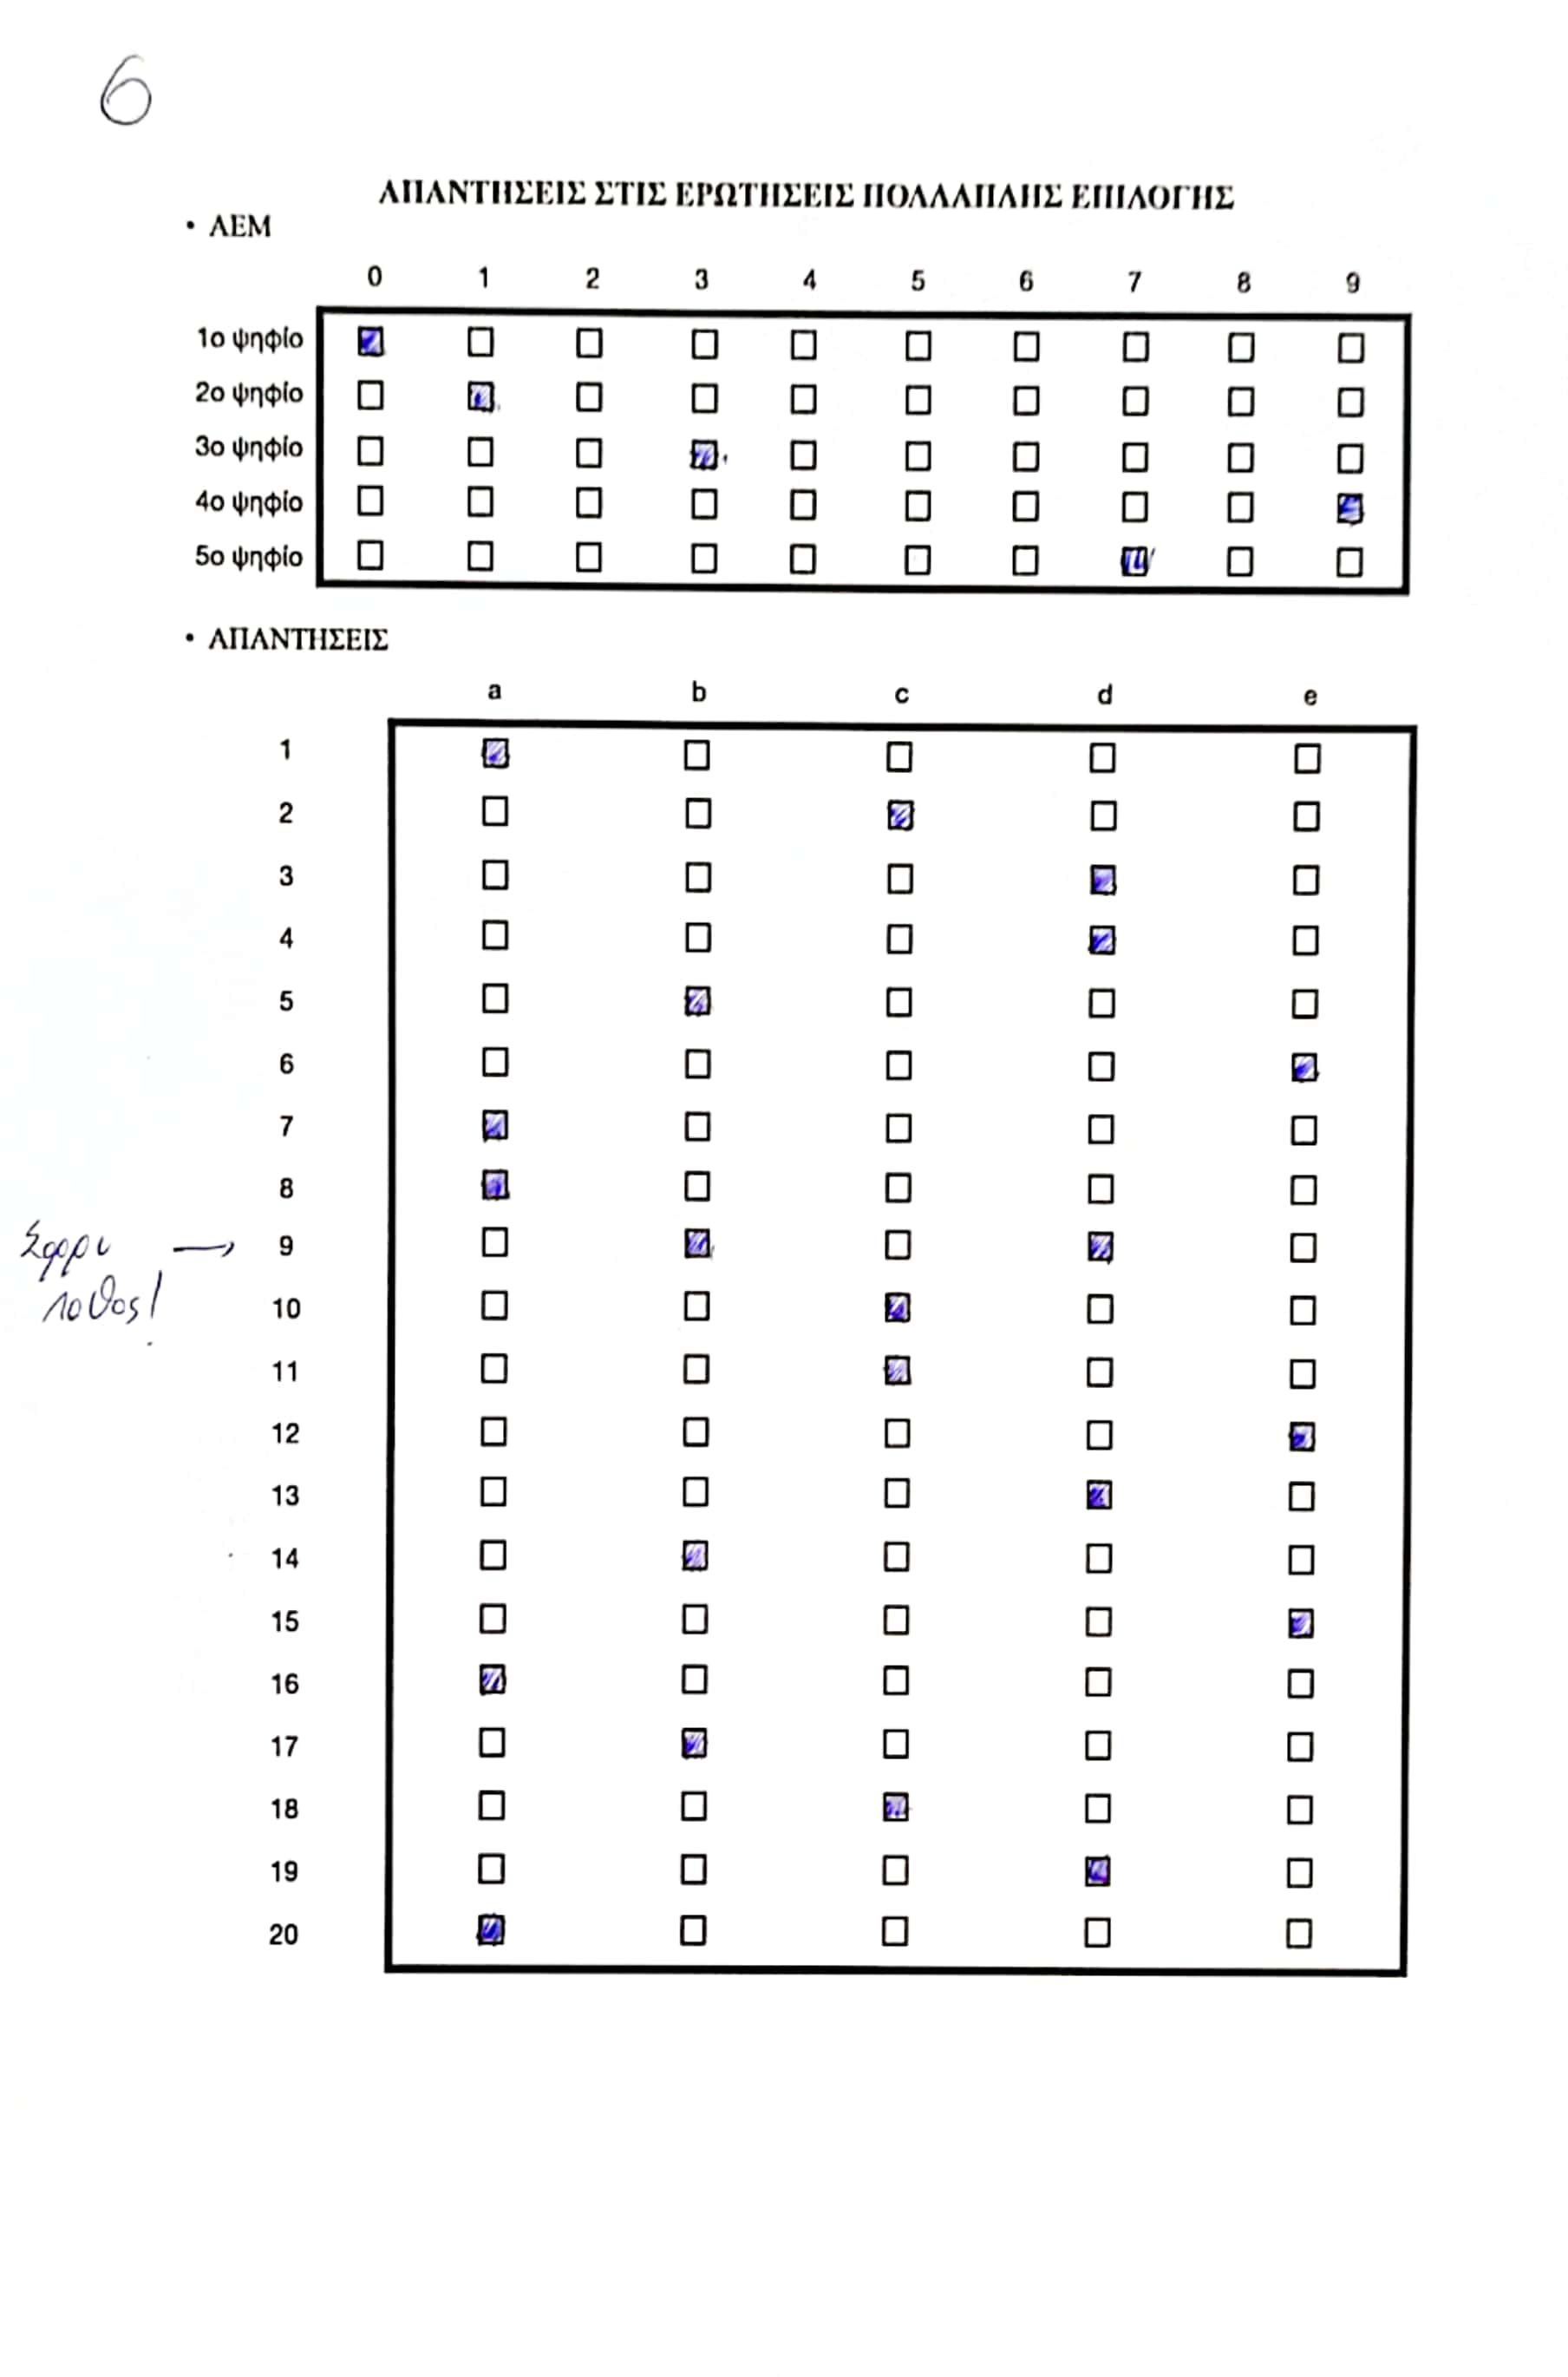 6
ΑΠΑΝΤΗΣΕΙΣ ΣΤΙΣ ΕΡΩΤΗΣΕΙΣ ΠΟΛΛΑΠΛΗΣ ΕΠΙΛΟΓΗΣ
• ΑΕΜ
0 1 2 3 4 5 6 7 8 9
1ο ψηφίο
2ο ψηφίο
3ο ψηφίο
4ο ψηφίο
5ο ψηφίο
• ΑΠΑΝΤΗΣΕΙΣ
a b c d e
1
2
3
4
5
6
7
8
9
λαθος!
10
11
12
13
14
15
16
17
18
19
20